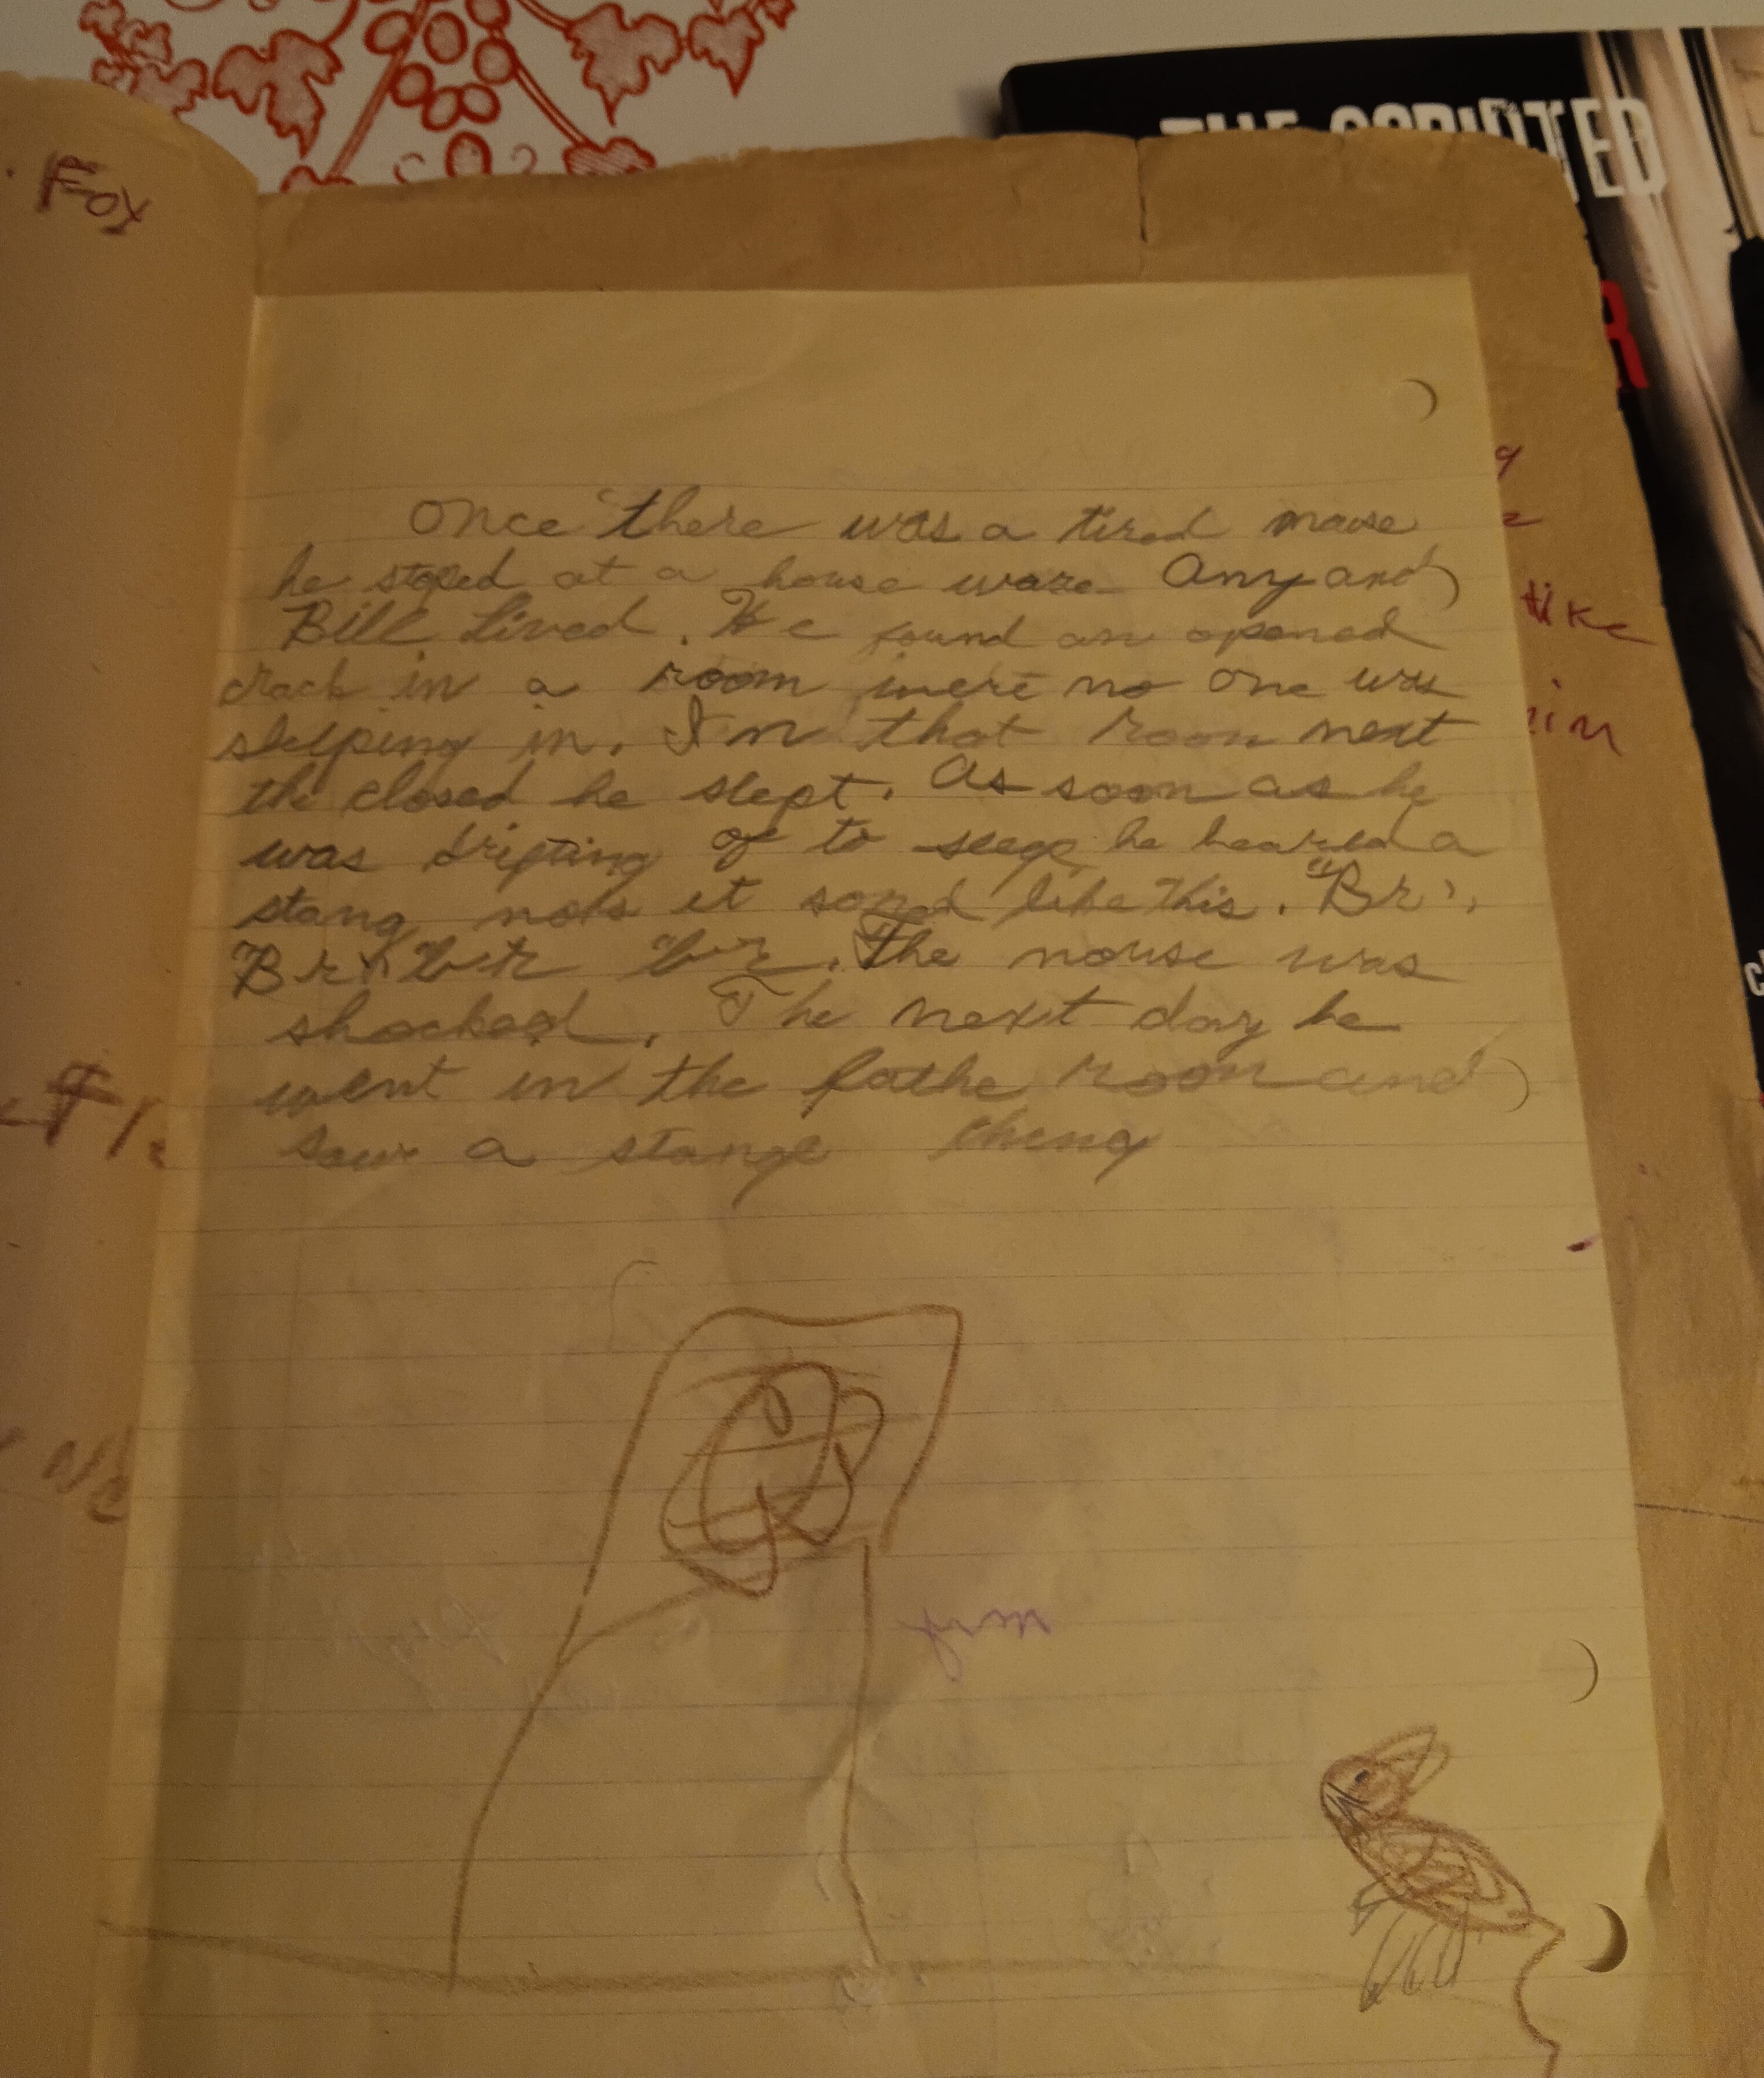 THE SCRIPTED
Fox
Once there was a tired mouse
he stoped at a house ware Amy and
Bill Lived. He found an opened
crack in a room were no one was
sleping in. In that room next
the closed he slept. As soon as he
was drifting of to sleep he heared a
stang nois it sond like this. "Br",
Br" "br "br. The mouse was
shocked. The next day he
went in the fathe room and
saw a stange thing
like
him